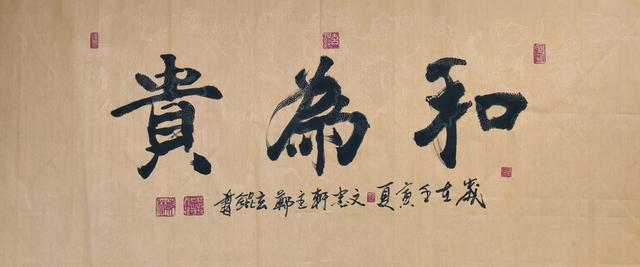 和為貴
歲在壬寅夏 文軒主鄭書